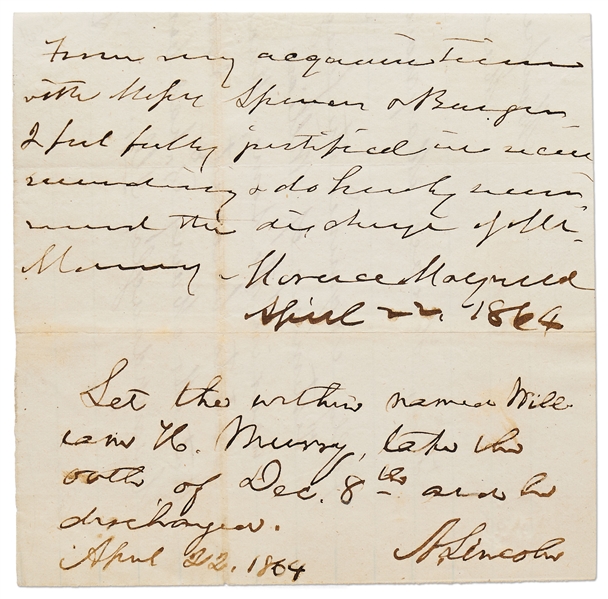 From my acquaintance
with Messrs Spencer & Burgen
I feel fully justified in recom
mending & do hereby recom
mend the discharge of Mr.
Murry Horace Maynard
April 22. 1864
Let the within named Will-
iam H. Murry, take the
oath of Dec. 8th and be
discharged.
April 22. 1864 A. Lincoln